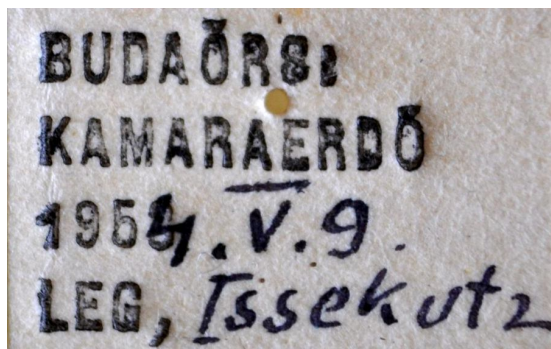 BUDAŐRS:
KAMARAERDŐ
1954.V.9.
LEG, Issekutz